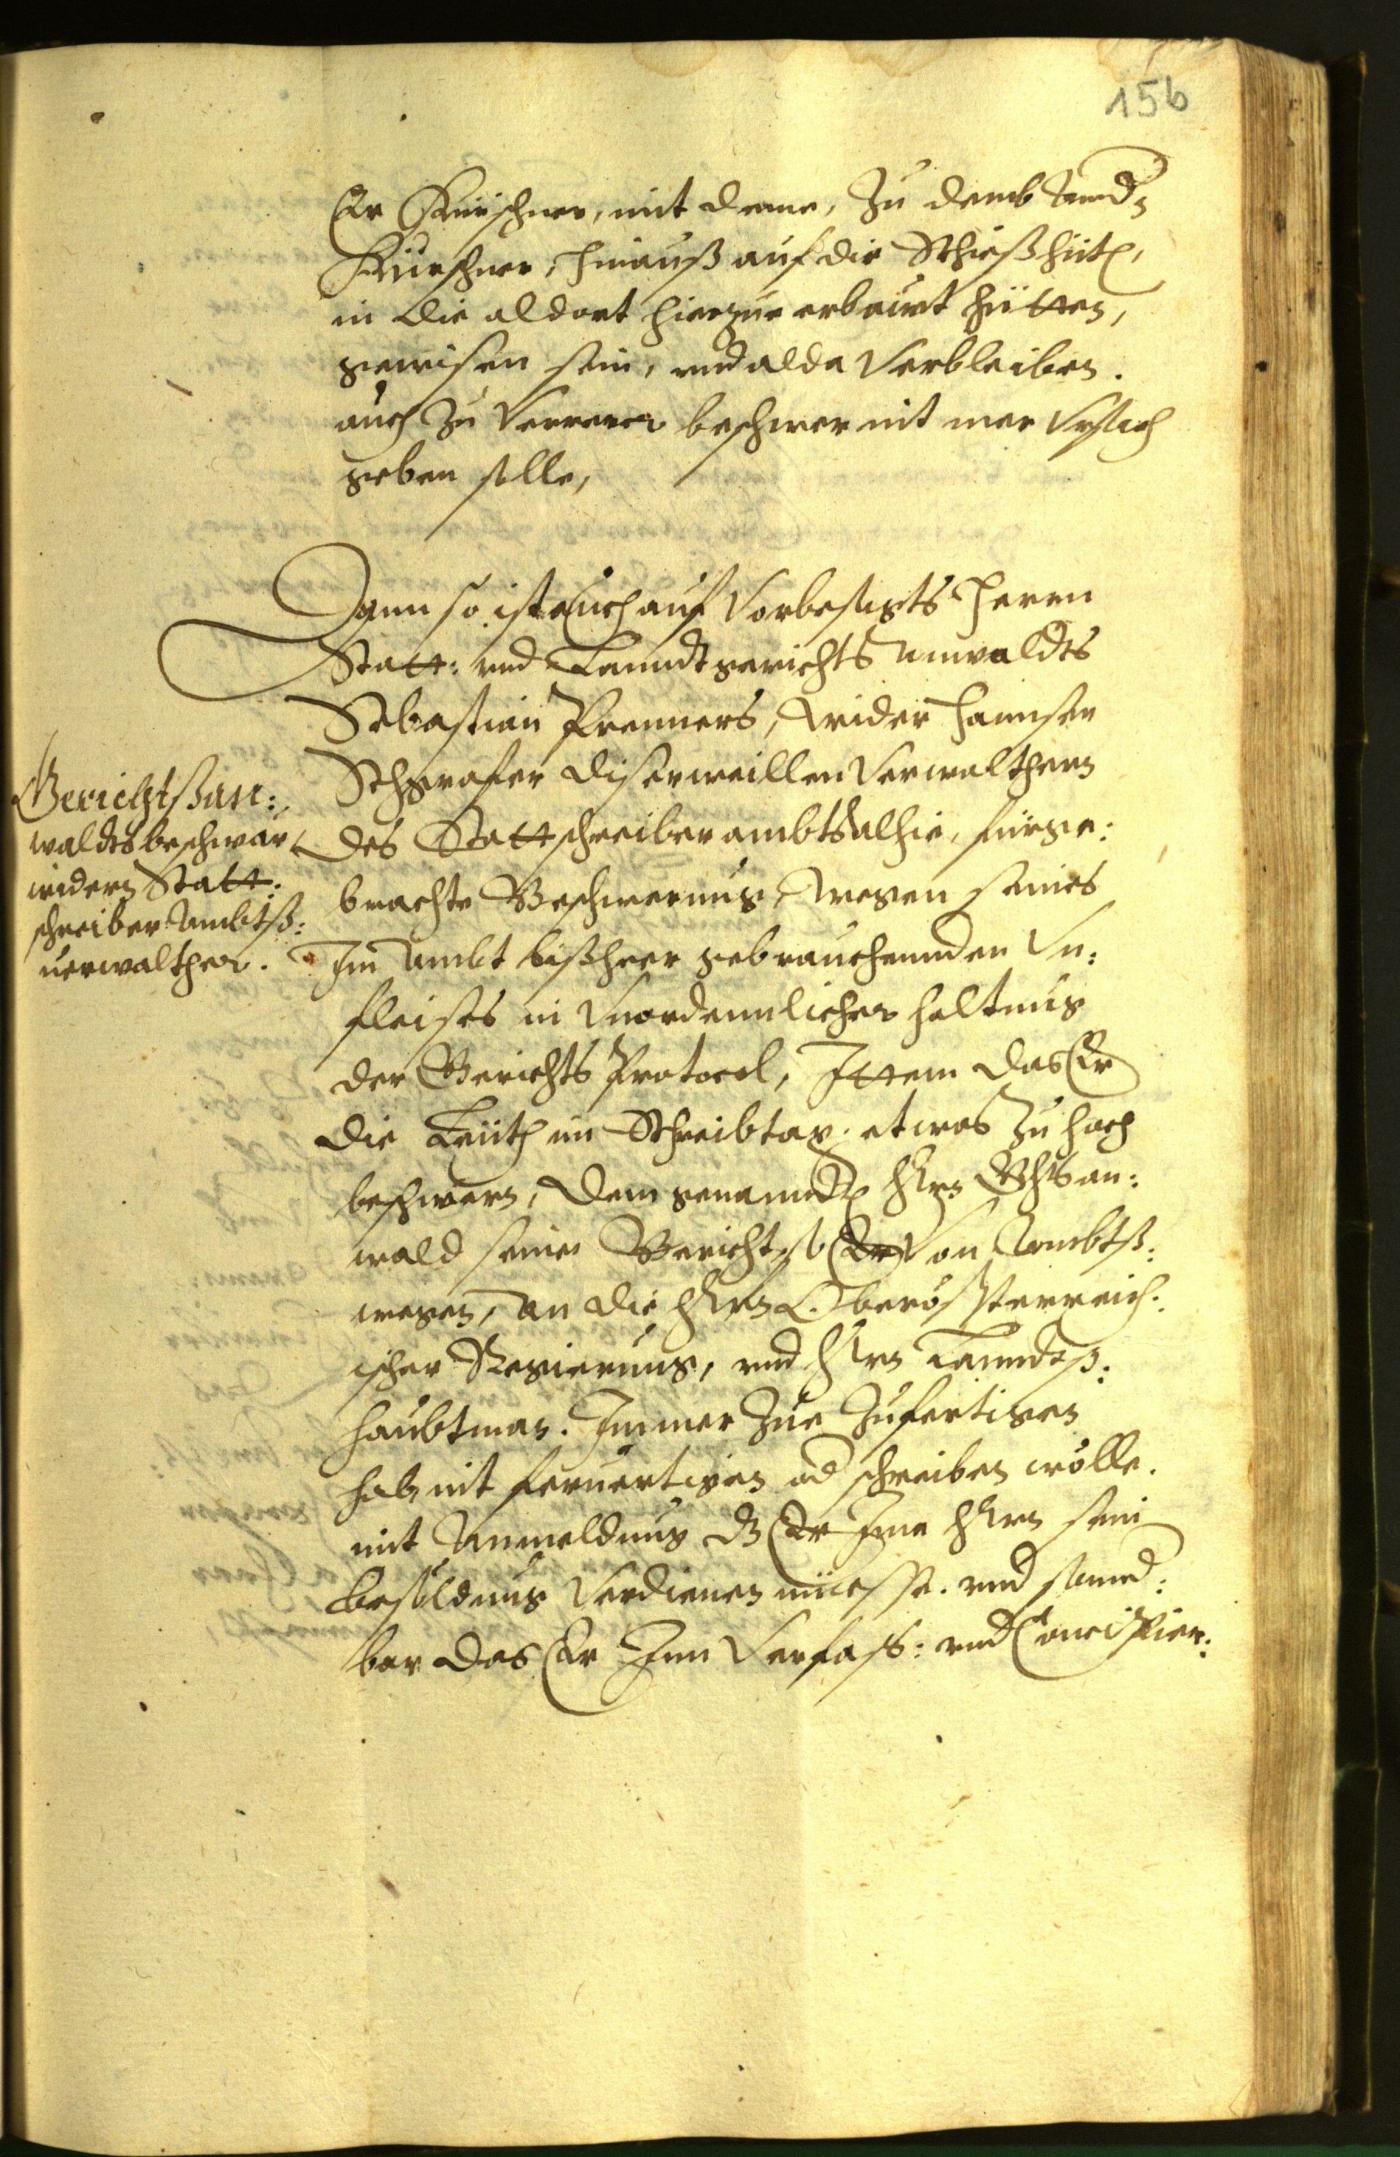 156
Er Kürschner, mit deme, zu demb Annd
Kürschner, hinauß auf die Schießhüt,
in die aldort hierzue erbawt hütten,
gewisen sein, und alda verbleiben.
auch zu verrerer beschwer nit mer Ursach
geben solle,
Dann so ist auch auf vorbesagts Herrn
Statt: und Lanndtgerichts Anwaldts
Sebastian Prenners, wider Hannsen
Schgrafer diserweillen Verwalthern
des Stattschreiber ambts alhie, fürge:
brachte Beschwernus, wegen seines
Im Ambt bißheer gebrauchennden Un:
fleises in Unordennlicher haltnus
der Gerichts Protocol, Ittem das Er
die Leüth im Schreibtax etwas zu hoch
beschwern, dem genannten Herrn Grichtsan:
wald seine Bericht so Er von Ambtß:
wegen, an die Herrn Oberösterreich:
ischer Regierung, und Herrn Lanndtß:
haubtman. Immer zue zufertigen
hab, nit ferertigen od schreiben wölle.
mit Anmeldung dz Er Ime Herrn sein
besöldung verdienen müesse. und sonnd:
bar das Er Inn Verfass: und Concipier:
Gerichtßan:
waldts beschwär
widern Statt:
schreiber Ambtß:
verwalther.